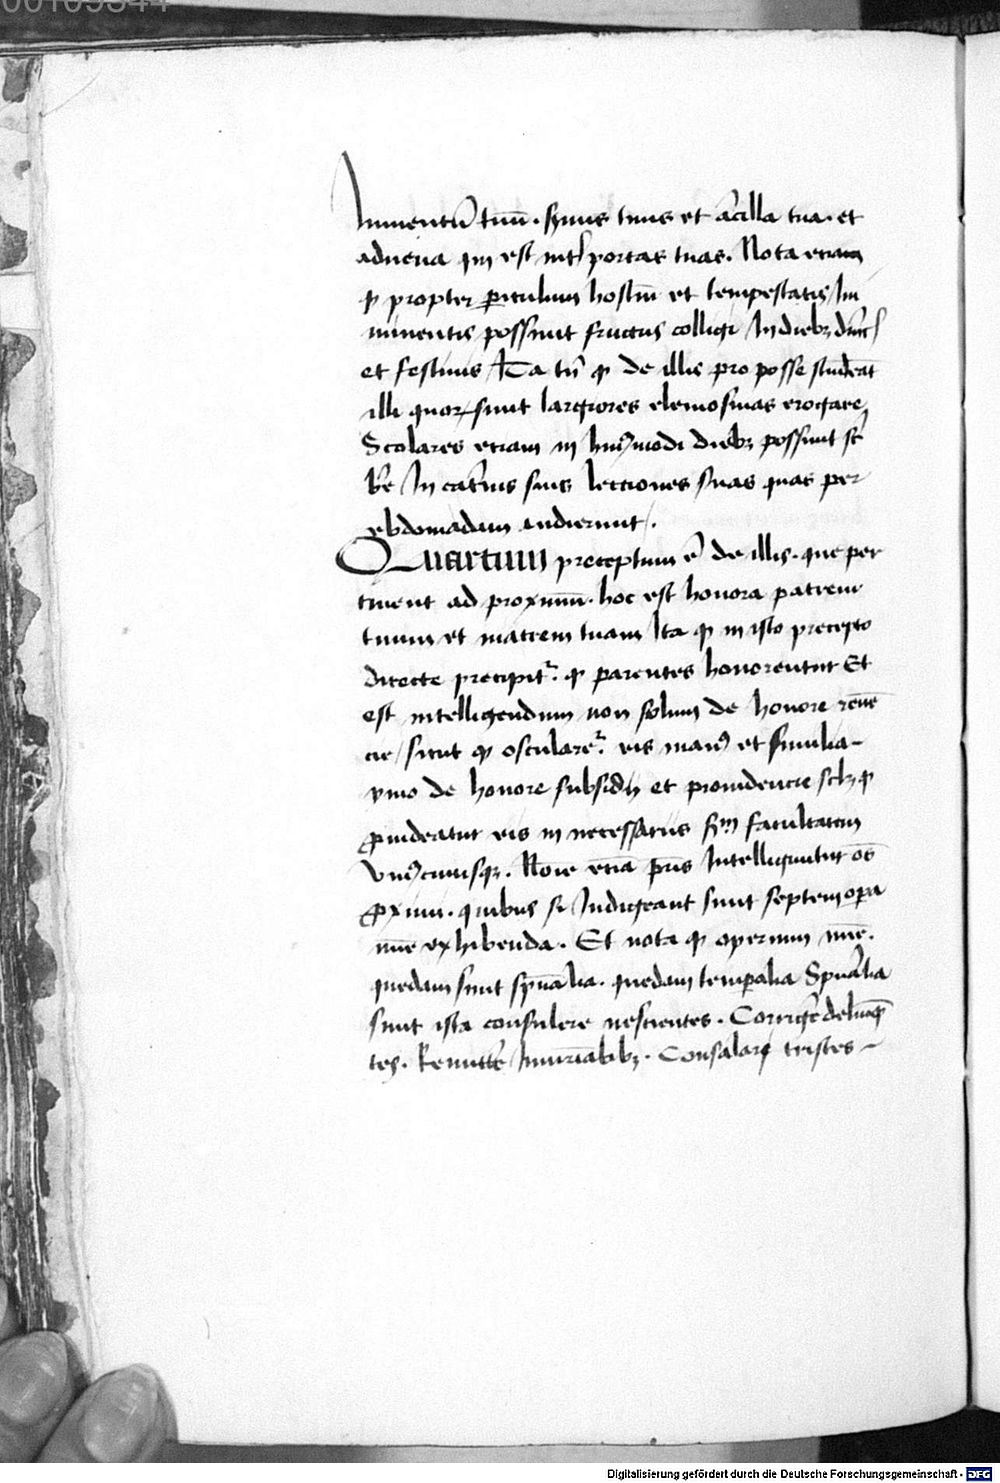 Iumentū tuū. s̄uus tuus et ācilla tua. et
aduena qui est int̄ portas tuas. Nota etiam
ꝙ propter ꝑiculum hostiū et tempestatis Im
minentis possunt fructus colligi In diebꝫ dūic̄
et festiuis Ita tn̄ ꝙ de illis pro posse studeāt
illi quoꝝ sunt largiores elemosinas erogare
Scolares etiam in huiꝰmodi diebꝫ possunt sc̄
bē In cat̄nis suis lectiones suas quas per
ebdomadam audierunt.
Quartum preceptum ē de illis. que per
tinent ad proximū. hoc est honora patrem
tuum et matrem tuam Ita ꝙ in isto precepto
directe precipit᷑. ꝙ parentes honorentur Et
est intelligendum non solum de honore reuē
cie / sicut ꝙ osculare᷑. eis manꝰ et similia
ymo de honore subsidij et prouidencie sclꝫ ꝙ
ꝓuideatur eis in necessarijs scdm facultatem
vniꝰcuiusqꝫ. Nōie etiā pn̄s Intelliguntur oēs
ꝓximi. quibus si Indigeant sunt septem oꝑa
mīe exhibenda. Et nota ꝙ operum mīe.
quedam sunt spūalia. quedam temꝑalia Spūalia
sunt ista consulere nescientes. Corrigē delinq̄
tes. Remittē Iniuriātibꝫ. Consolari tristes
00109344
Digitalisierung gefördert durch die Deutsche Forschungsgemeinschaft - DFG